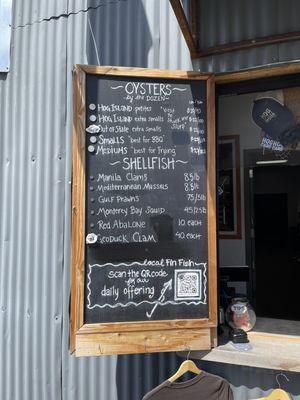 OYSTERS
by the DOZEN
HOG ISLAND petites
HOG ISLAND extra smalls
Out of State extra smalls
SMALLS "best for BBQ"
MEDIUMS "best for frying"
SHELLFISH
Manila Clams 8/lb
Mediterranean Mussels 8/lb
Gulf Prawns
Monterey Bay Squid
Red Abalone 10 EACH
Geoduck Clam 40 EACH
local Fin Fish
SCAN the QR code
for our
daily offering